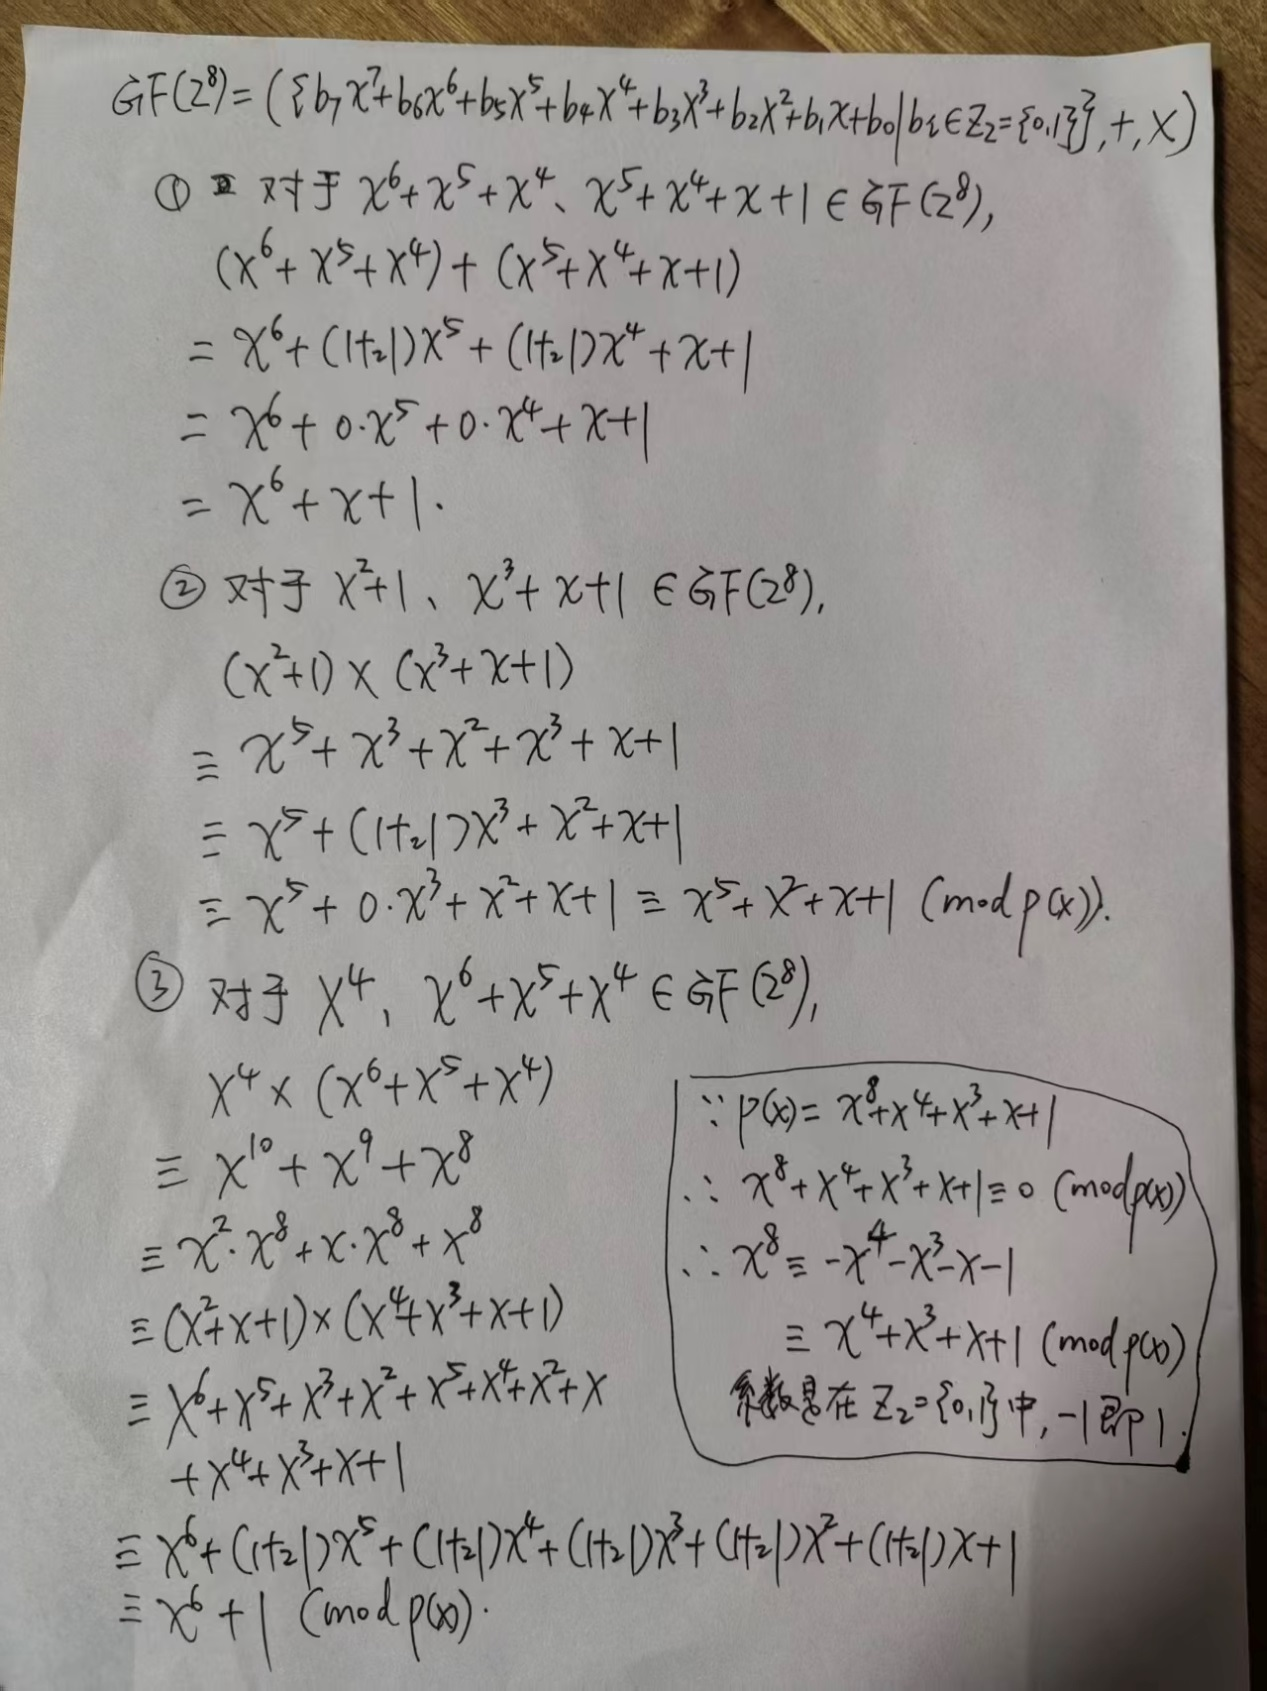 GF(2⁸)=({b₇x⁷+b₆x⁶+b₅x⁵+b₄x⁴+b₃x³+b₂x²+b₁x+b₀|bᵢ∈Z₂={0,1}},+,×)
① 对于 x⁶+x⁵+x⁴、x⁵+x⁴+x+1∈GF(2⁸),
(x⁶+x⁵+x⁴)+(x⁵+x⁴+x+1)
=x⁶+(1+₂1)x⁵+(1+₂1)x⁴+x+1
=x⁶+0·x⁵+0·x⁴+x+1
=x⁶+x+1.
② 对于 x²+1、x³+x+1∈GF(2⁸),
(x²+1)×(x³+x+1)
≡x⁵+x³+x²+x³+x+1
≡x⁵+(1+₂1)x³+x²+x+1
≡x⁵+0·x³+x²+x+1≡x⁵+x²+x+1 (mod p(x)).
③ 对于 x⁴、x⁶+x⁵+x⁴∈GF(2⁸),
x⁴×(x⁶+x⁵+x⁴)
≡x¹⁰+x⁹+x⁸
≡x²·x⁸+x·x⁸+x⁸
≡(x²+x+1)×(x⁴+x³+x+1)
≡x⁶+x⁵+x³+x²+x⁵+x⁴+x²+x
+x⁴+x³+x+1
≡x⁶+(1+₂1)x⁵+(1+₂1)x⁴+(1+₂1)x³+(1+₂1)x²+(1+₂1)x+1
≡x⁶+1 (mod p(x)).
∵p(x)=x⁸+x⁴+x³+x+1
∴x⁸+x⁴+x³+x+1≡0 (mod p(x))
∴x⁸≡-x⁴-x³-x-1
≡x⁴+x³+x+1 (mod p(x))
系数是在Z₂={0,1}中,-1即1.